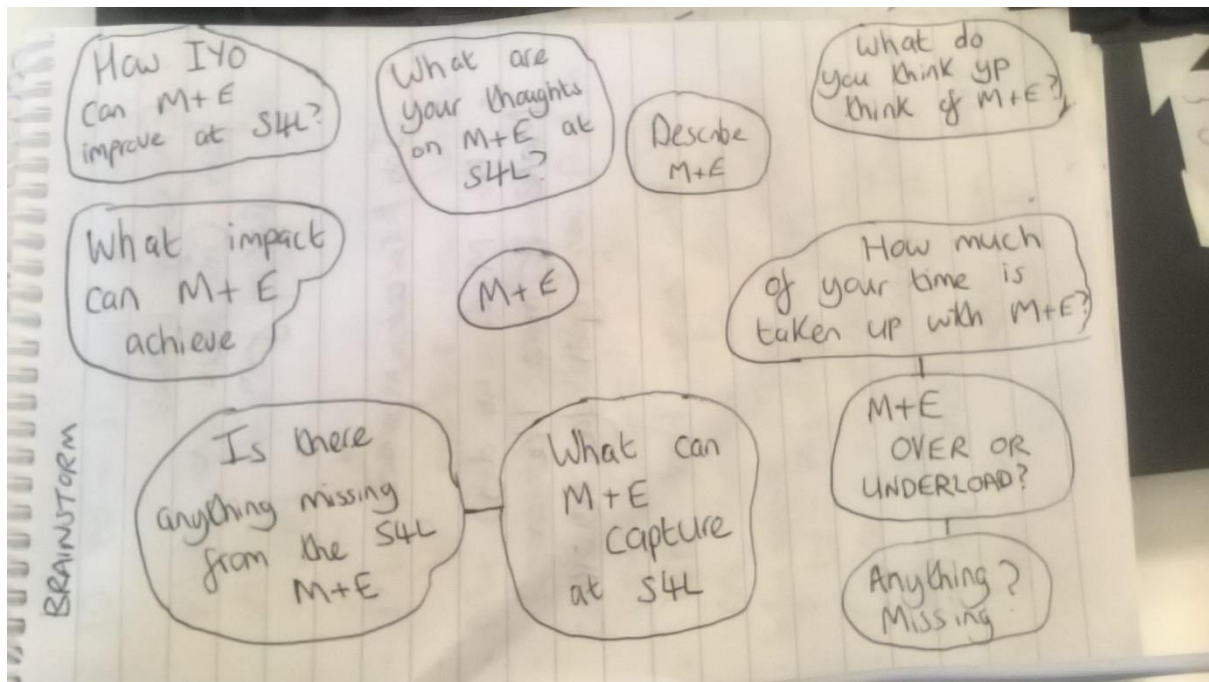 How IYO
can M+E
improve at S4L?
What are
your thoughts
on M+E at
S4L?
Describe
M+E
What do
you think yp
think of M+E?
What impact
can M+E
achieve
M+E
How much
of your time is
taken up with M+E?
M+E
OVER OR
UNDERLOAD?
Anything?
Missing
Is there
anything missing
from the S4L
M+E
What can
M+E
capture
at S4L
BRAINSTORM